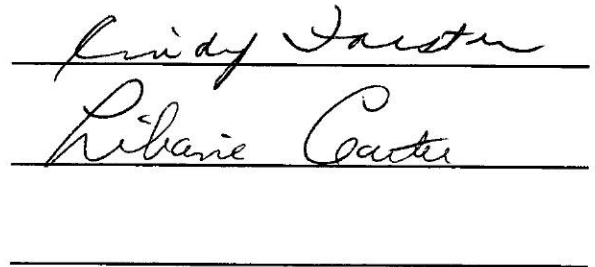 Cindy Forster
Libanie Carter